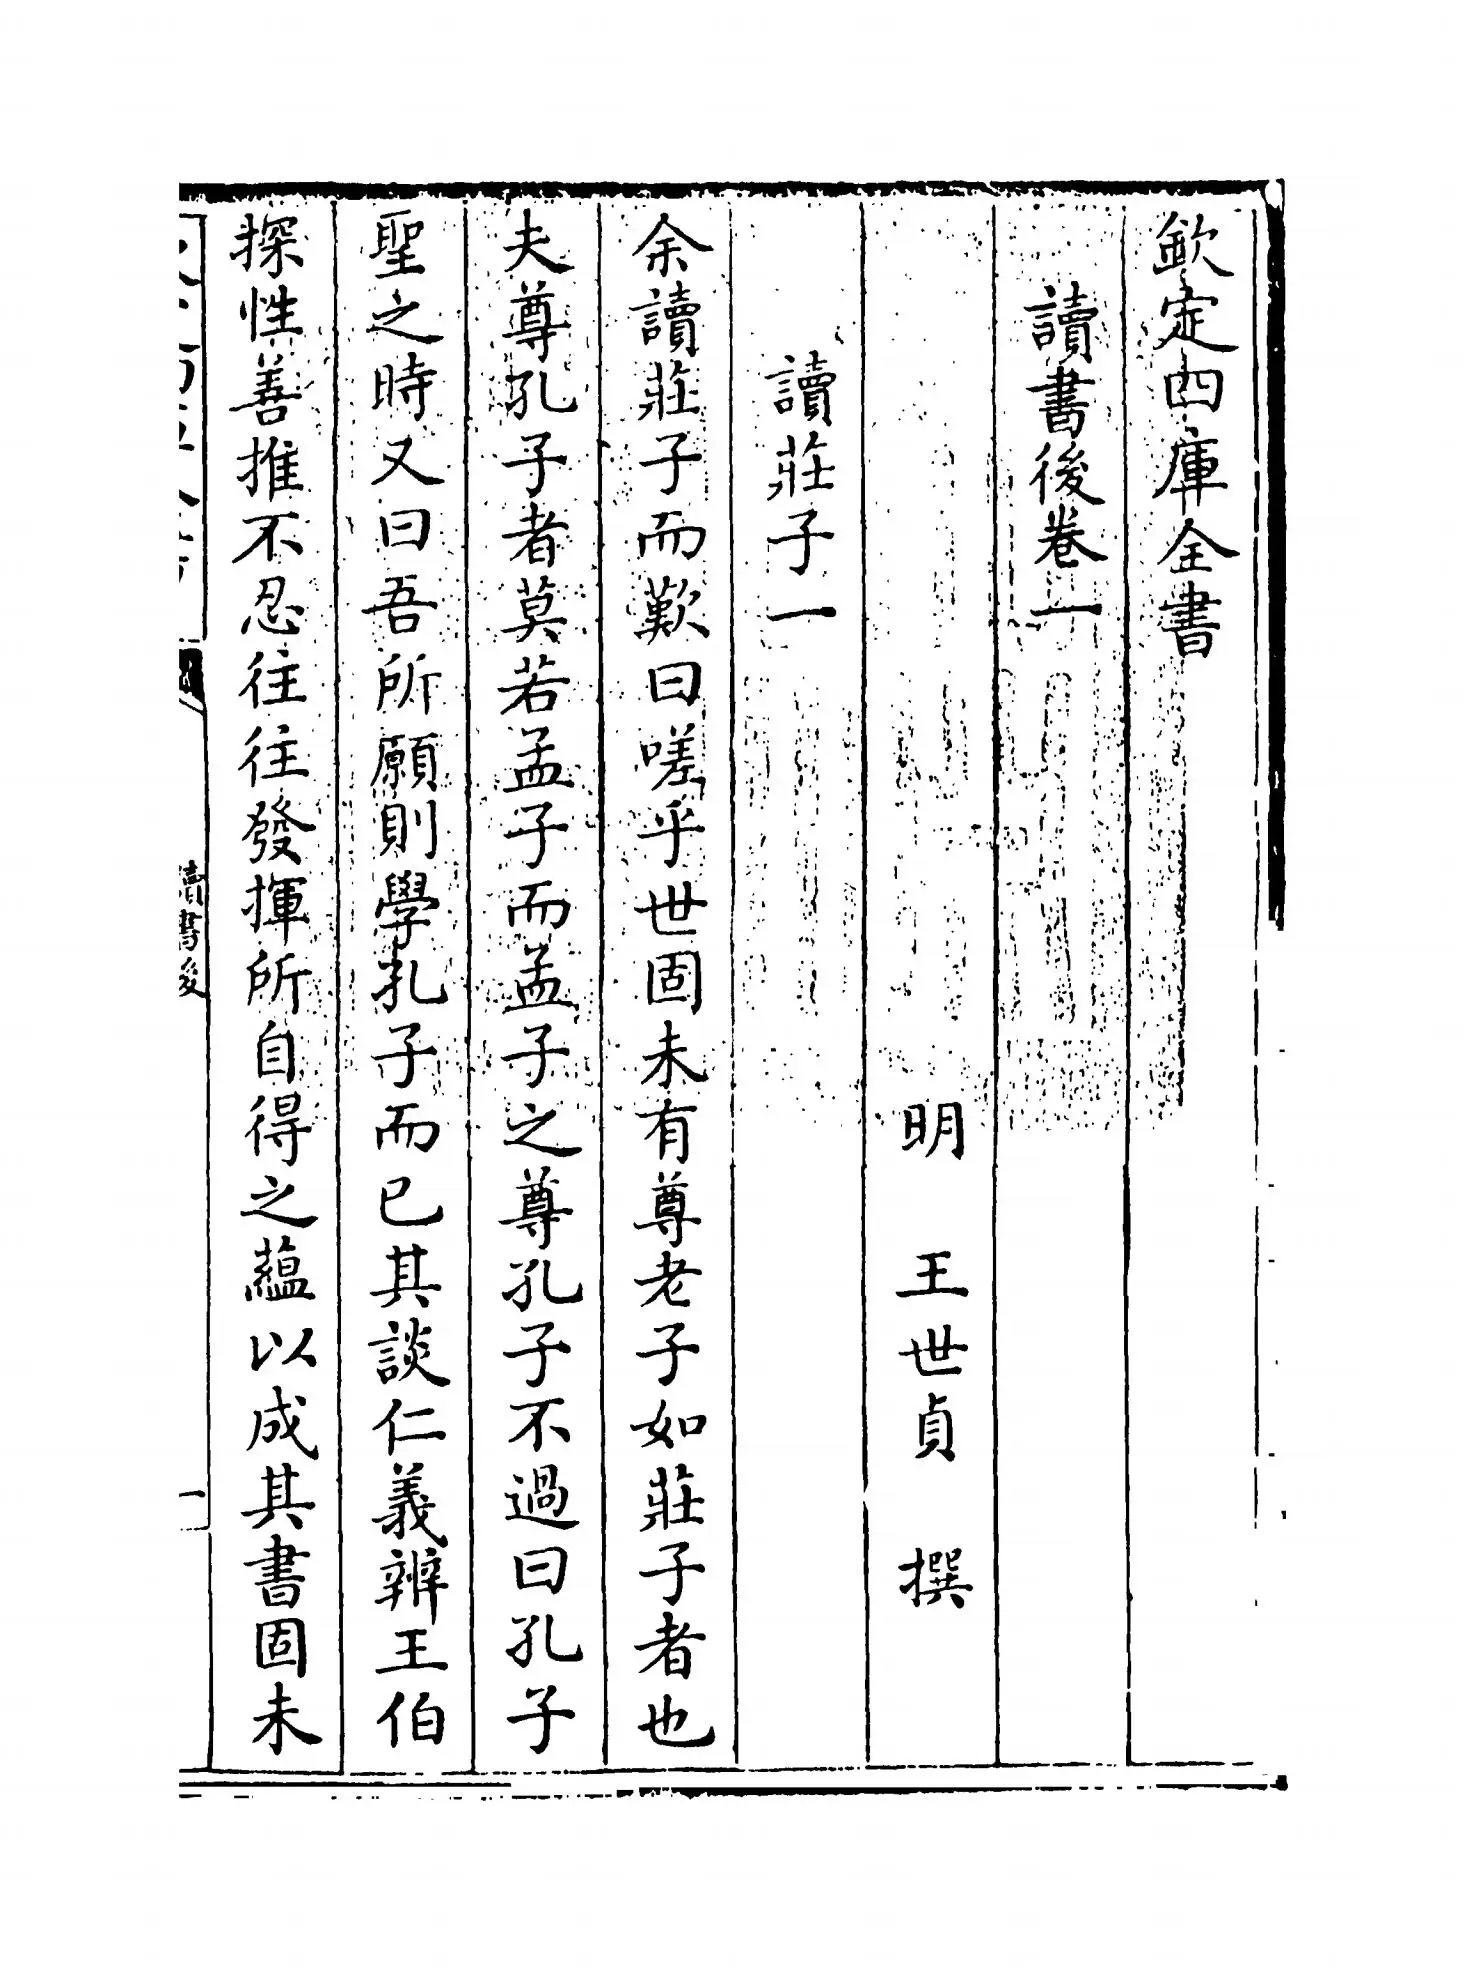 欽定四庫全書
讀書後卷一
明 王世貞 撰
讀莊子一
余讀莊子而歎曰嗟乎世固未有尊老子如莊子者也
夫尊孔子者莫若孟子而孟子之尊孔子不過曰孔子
聖之時又曰吾所願則學孔子而已其談仁義辨王伯
探性善推不忍往往發揮所自得之蘊以成其書固未
讀書後
一